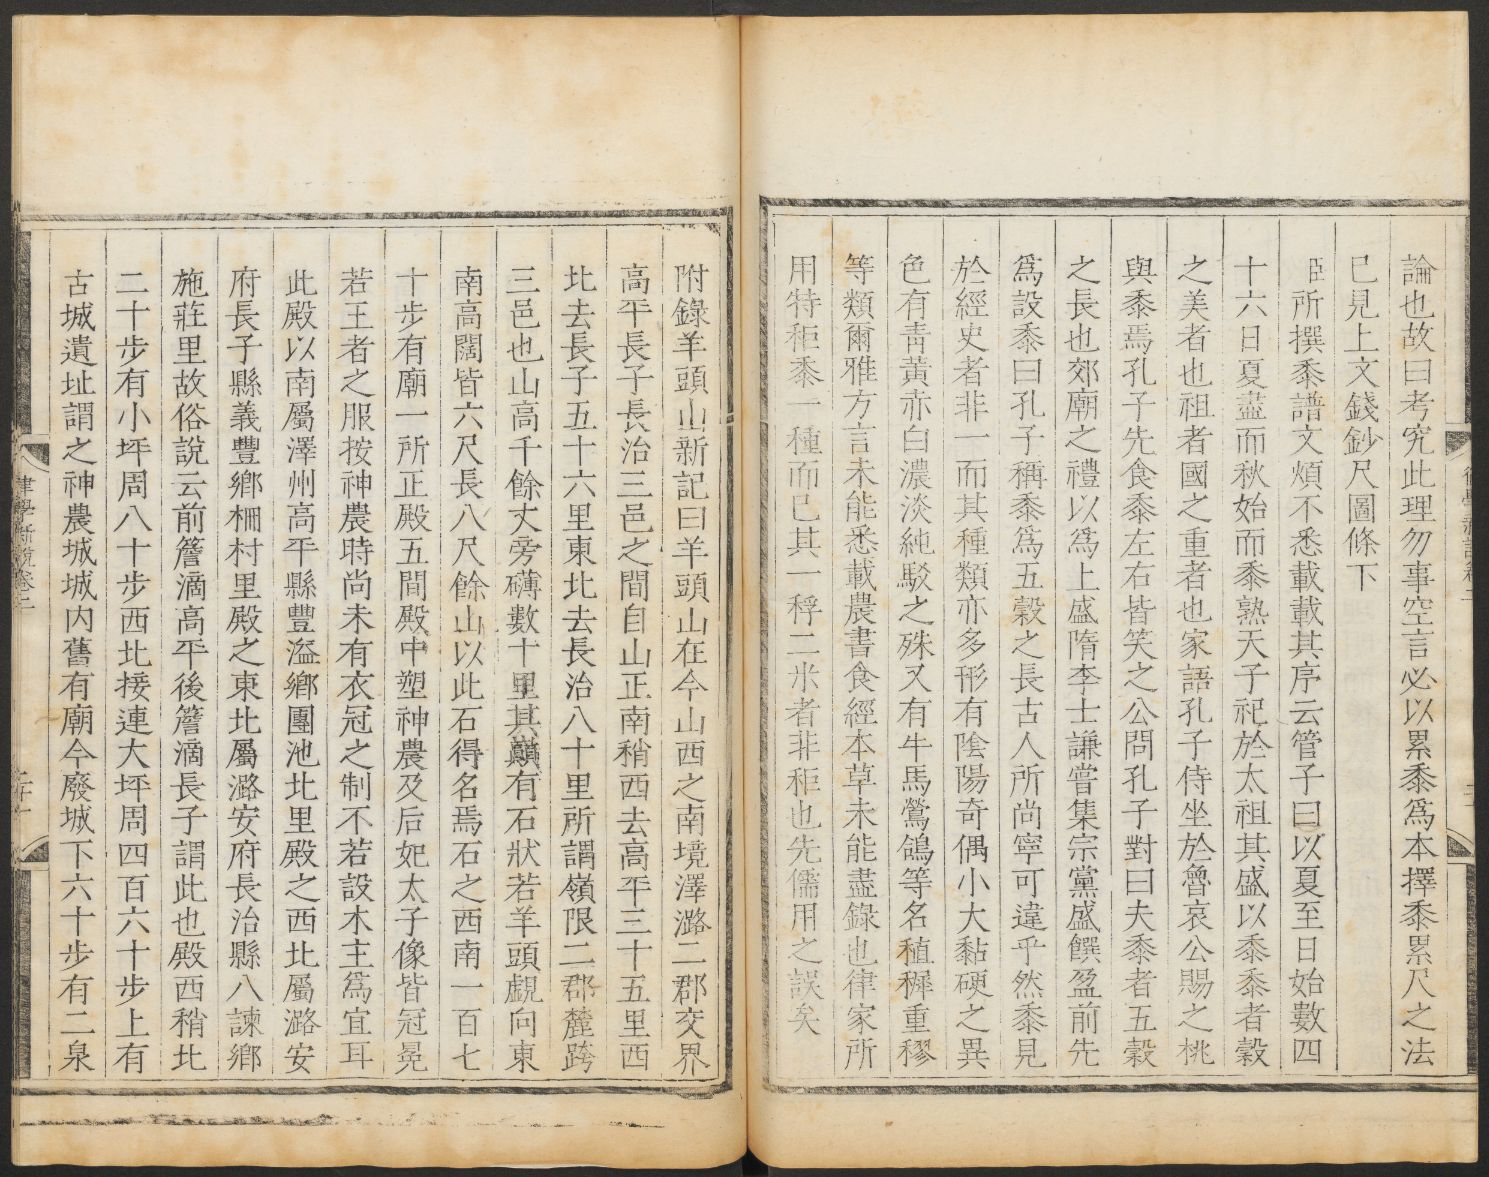 論也故曰考究此理勿事空言必以累黍爲本擇黍累尺之法
已見上文錢鈔尺圖條下
臣所撰黍譜文煩不悉載載其序云管子曰以夏至日始數四
十六日夏盡而秋始而黍熟天子祀於太祖其盛以黍黍者穀
之美者也祖者國之重者也家語孔子侍坐於魯哀公賜之桃
與黍焉孔子先食黍左右皆笑之公問孔子對曰夫黍者五穀
之長也郊廟之禮以爲上盛隋李士謙嘗集宗黨盛饌盈前先
爲設黍曰孔子稱黍爲五穀之長古人所尚寧可違乎然黍見
於經史者非一而其種類亦多形有陰陽奇偶小大黏硬之異
色有靑黃赤白濃淡純駁之殊又有牛馬鶯鴿等名稙稺重穋
等類爾雅方言未能悉載農書食經本草未能盡錄也律家所
用特秬黍一種而已其一稃二米者非秬也先儒用之誤矣
附錄羊頭山新記曰羊頭山在今山西之南境澤潞二郡交界
高平長子長治三邑之間自山正南稍西去高平三十五里西
北去長子五十六里東北去長治八十里所謂嶺限二郡麓跨
三邑也山高千餘丈旁礴數十里其巓有石狀若羊頭覷向東
南高闊皆六尺長八尺餘山以此石得名焉石之西南一百七
十步有廟一所正殿五間殿中塑神農及后妃太子像皆冠冕
若王者之服按神農時尚未有衣冠之制不若設木主爲宜耳
此殿以南屬澤州高平縣豐溢鄉團池北里殿之西北屬潞安
府長子縣義豐鄉柵村里殿之東北屬潞安府長治縣八諫鄉
施莊里故俗說云前簷滴高平後簷滴長子謂此也殿西稍北
二十步有小坪周八十步西北接連大坪周四百六十步上有
古城遺址謂之神農城城内舊有廟今廢城下六十步有二泉
律學新說卷二
二十一